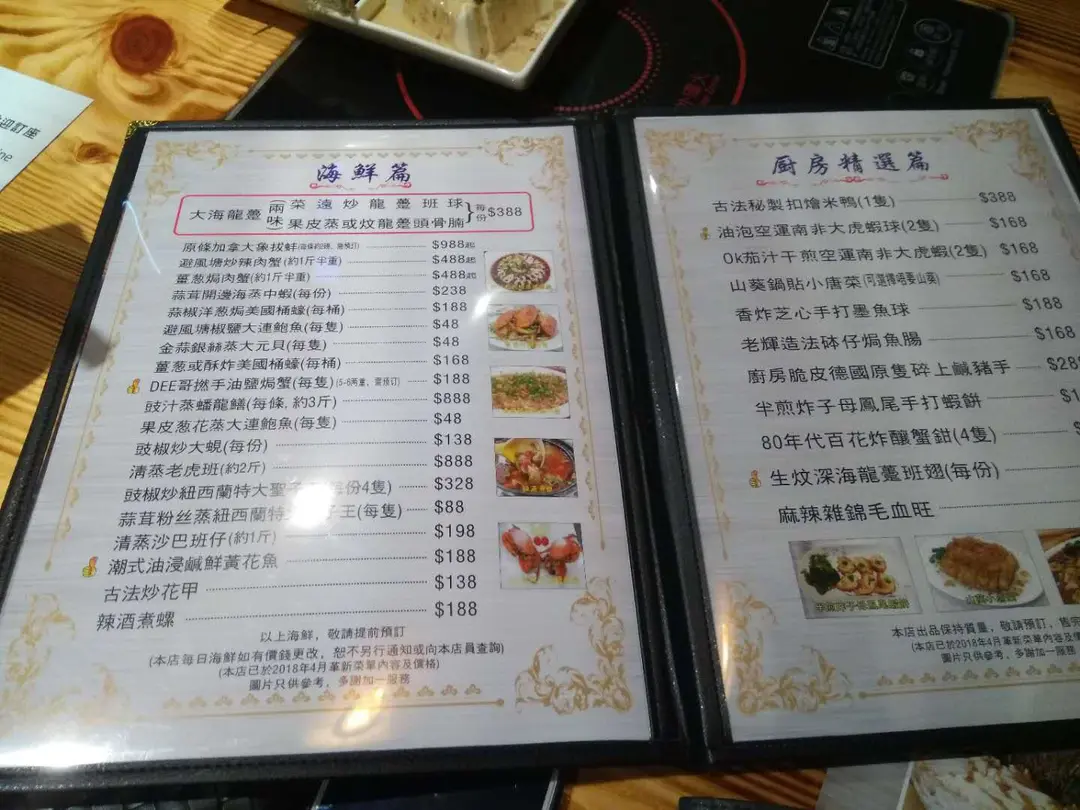 迎訂座
海鮮篇
大海龍躉 兩味 菜遠炒龍躉班球 每份 $388
果皮蒸或炆龍躉頭骨腩
原條加拿大象拔蚌 $988起
避風塘炒辣肉蟹(約1斤半重) $488起
薑葱焗肉蟹(約1斤半重) $488起
蒜茸開邊海蒸中蝦(每份) $238
蒜椒洋葱焗美國桶蠔(每桶) $188
避風塘椒鹽大連鮑魚(每隻) $48
金蒜銀絲蒸大元貝(每隻) $48
薑葱或酥炸美國桶蠔(每桶) $168
DEE哥撚手油鹽焗蟹(每隻)(5-6両重，需預訂) $188
豉汁蒸蟠龍鱔(每條, 約3斤) $888
果皮葱花蒸大連鮑魚(每隻) $48
豉椒炒大蜆(每份) $138
清蒸老虎班(約2斤) $888
豉椒炒紐西蘭特大聖子 份4隻) $328
蒜茸粉丝蒸紐西蘭特 子王(每隻) $88
清蒸沙巴班仔(約1斤) $198
潮式油浸鹹鮮黃花魚 $188
古法炒花甲 $138
辣酒煮螺 $188
以上海鮮，敬請提前預訂
(本店每日海鮮如有價錢更改，恕不另行通知或向本店員查詢)
(本店已於2018年4月革新菜單內容及價格)
圖片只供參考，多謝加一服務
廚房精選篇
古法秘製扣燴米鴨(1隻) $388
油泡空運南非大虎蝦球(2隻) $168
Ok茄汁干煎空運南非大虎蝦(2隻) $168
山葵鍋貼小唐菜(可選擇唔要山葵) $168
香炸芝心手打墨魚球 $188
老輝造法砵仔焗魚腸 $168
廚房脆皮德國原隻碎上鹹豬手 $28
半煎炸子母鳳尾手打蝦餅 $1
80年代百花炸釀蟹鉗(4隻) $
生炆深海龍躉班翅(每份)
麻辣雜錦毛血旺
本店出品保持質量，敬請預訂，售完
(本店已於2018年4月革新菜單內容及
圖片只供參考，多謝加一服務